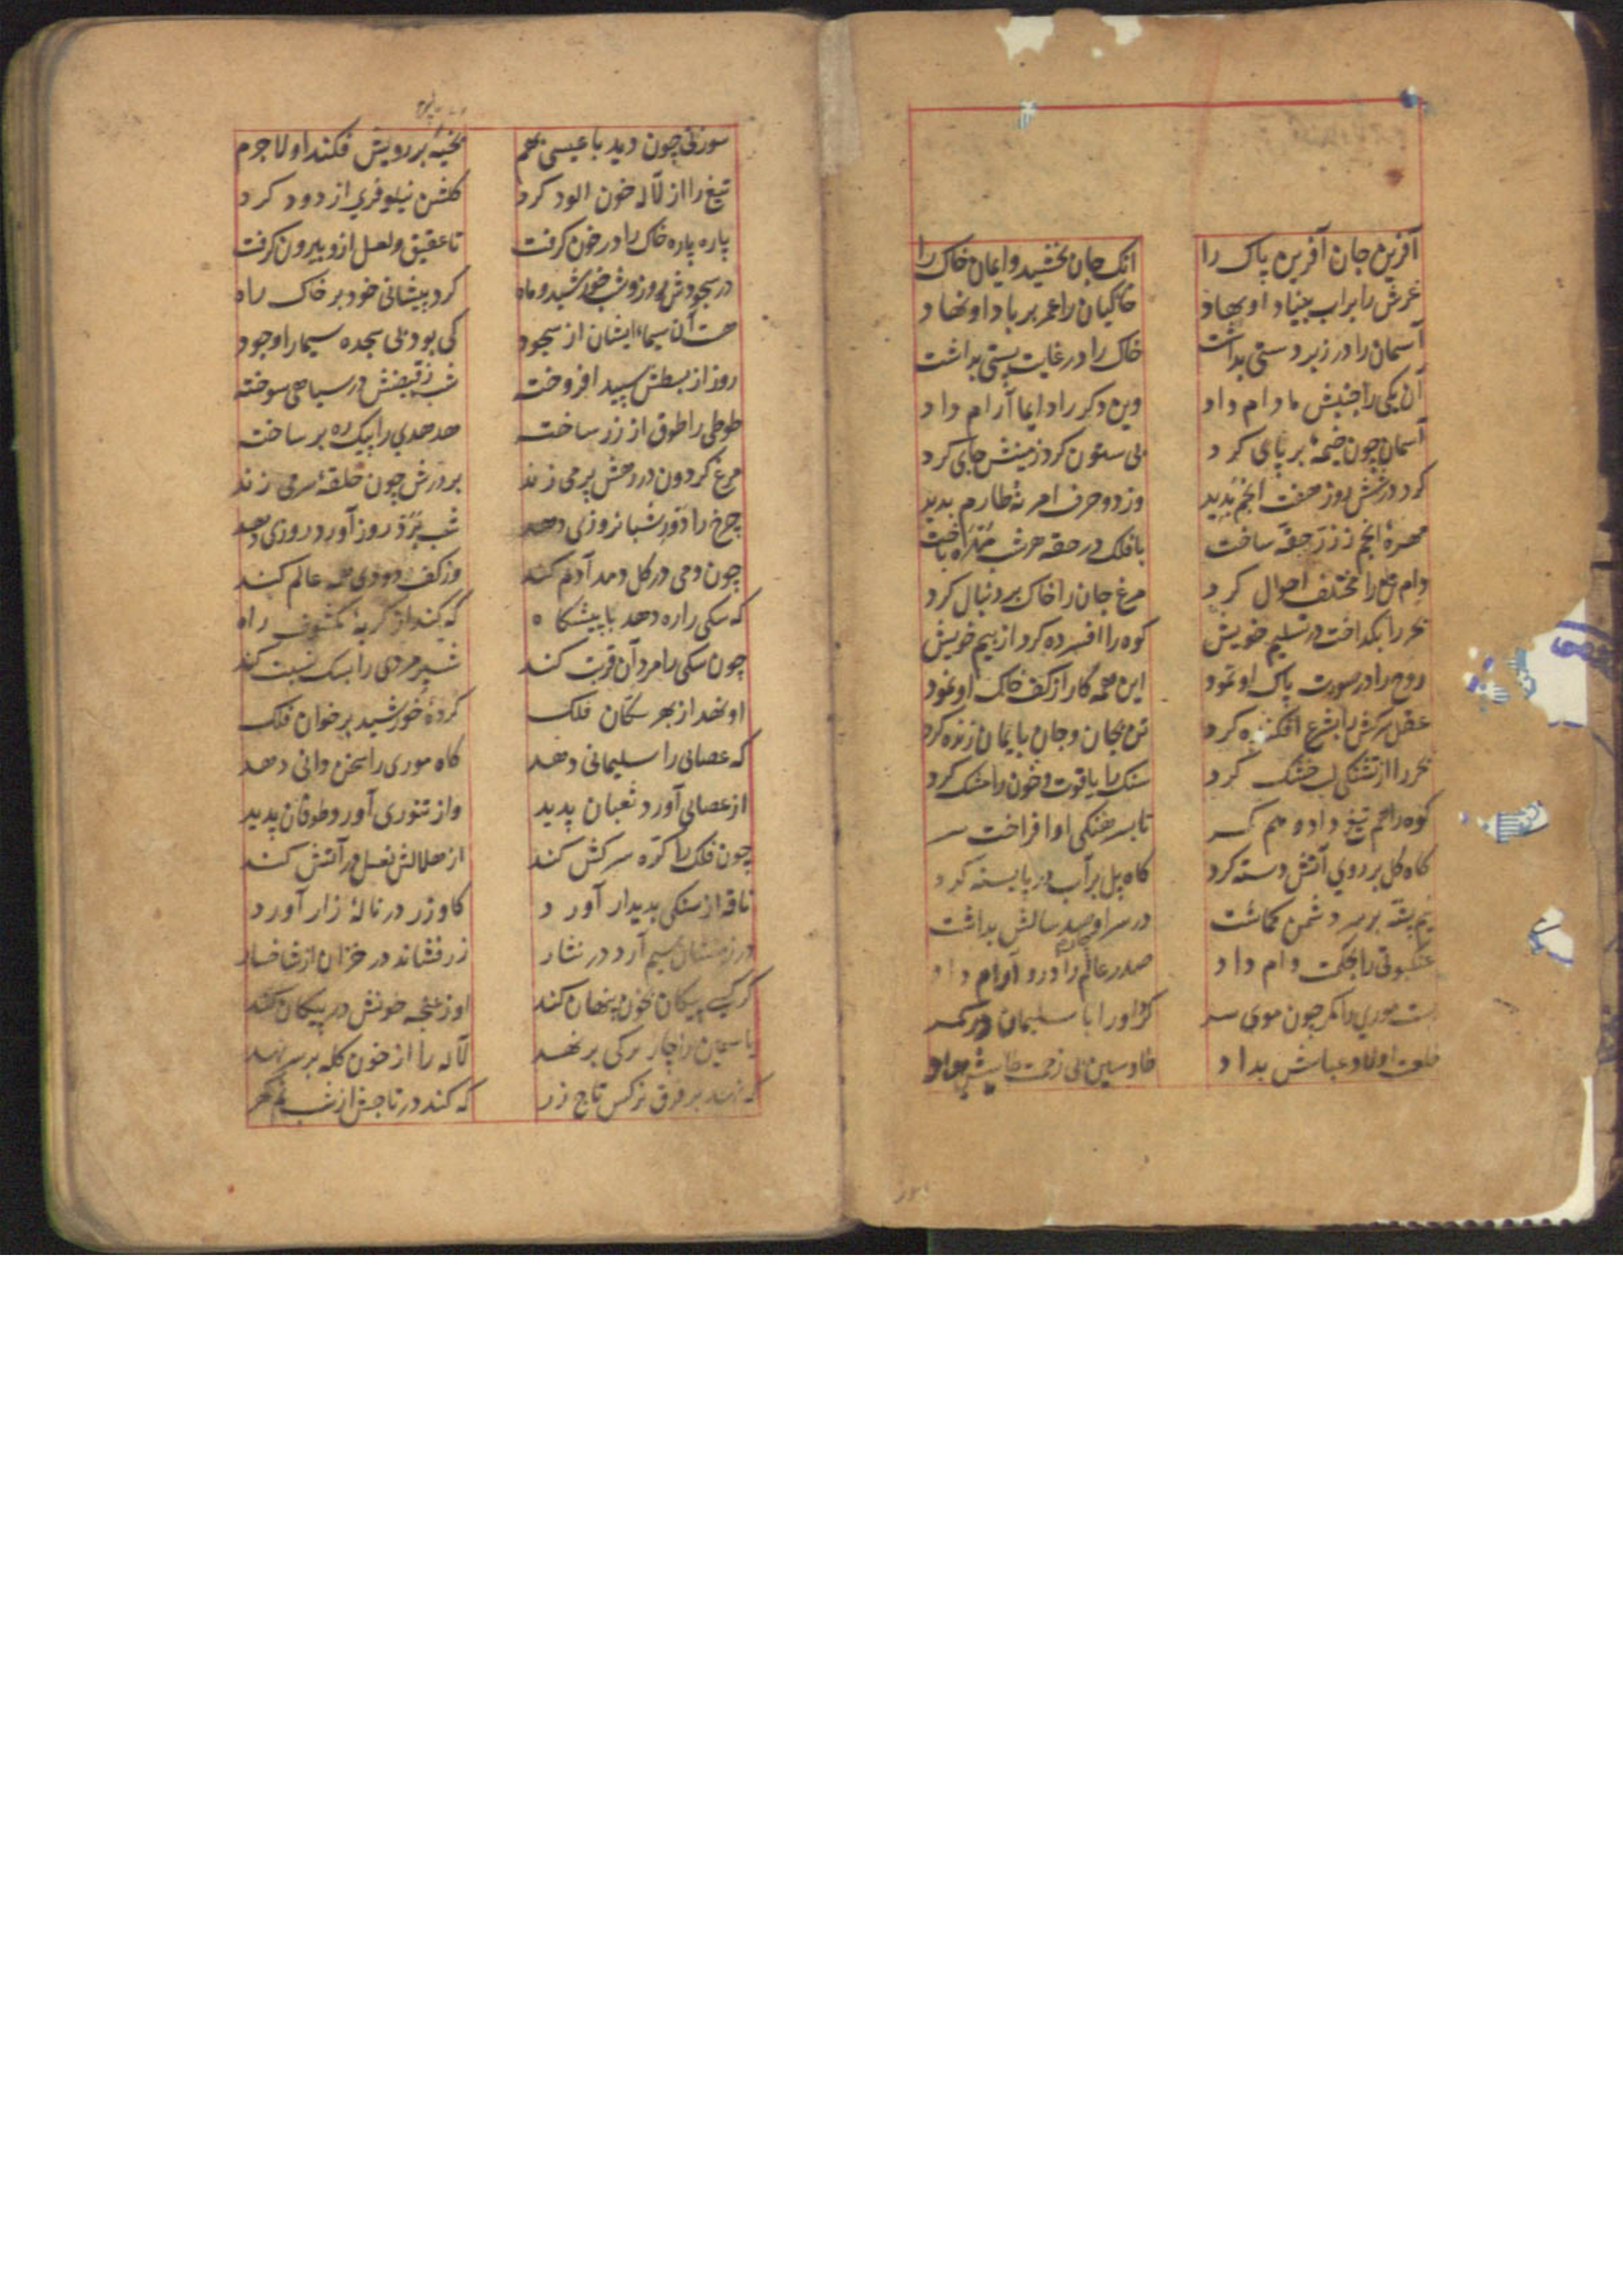 آفرین جان آفرین پاک را انک جان بخشید و ایمان خاک را
عرش را بر آب بنیاد او نهاد خاکیان را عمر بر باد او نهاد
آسمان را در زبر دستی بداشت خاک را در غایت پستی بداشت
آن یکی را جنبش مادام داد وین دکر را دایما آرام داد
آسمان چون خیمهٔ بر پای کرد بی ستون کرد زمینش جای کرد
کرد در شش روز هفت انجم پدید وز دو حرف امر نه طارم پدید
مهرهٔ انجم ز زرین حقه ساخت با فلک در حقه هر شب مهره باخت
دام تن را مختلف احوال کرد مرغ جان را خاک بر دنبال کرد
بحر را بکداخت در تسلیم خویش کوه را افسرده کرد از بیم خویش
روح را در صورت پاک او نمود این همه کار از کف خاک او نمود
عقل سرکش را بشرع افکنده کرد تن بجان و جان بایمان زنده کرد
بحر را از تشنکی لب خشک کرد سنک را یاقوت و خون را مشک کرد
کوه را هم تیغ داد و هم کمر تا بسرهنکی او افراخت سر
کاه کل بر روی آتش دسته کرد کاه پل بر آب دریا بسته کرد
نیم پشه بر سر دشمن کماشت در سر او چهار صد سالش بداشت
عنکبوتی را بحکمت دام داد صدر عالم را درو آرام داد
بست موری را کمر چون موی سر کرد او را با سلیمان در کمر
خلعت اولاد عباسش بداد طا و سین بی زحمت طاسش بداد
سوزنی چون دید با عیسی بهم بخیه بر رویش فکند او لاجرم
تیغ را از لاله خون الود کرد کلشن نیلوفری از دود کرد
پاره پاره خاک را در خون کرفت تا عقیق و لعل ازو بیرون کرفت
در سجودش روز و شب خورشید و ماه کرد پیشانی خود بر خاک راه
هست آن سیماء ایشان از سجود کی بود بی سجده سیما را وجود
روز از بسطش سپید افروخته شب ز قبضش در سیاهی سوخته
طوطی را طوق از زر ساخته هدهدی را پیک ره بر ساخته
مرغ کردون در رهش پر می زند بر درش چون حلقهٔ سر می زند
چرخ را دور شبانروزی دهد شب برد روز آورد روزی دهد
چون دمی در کل دمد آدم کند وز کف دودی همه عالم کند
که سکی را ره دهد با پیشکاه که کند از کربهٔ مکشوف راه
چون سکی را مرد آن قربت کند شیر مردی را بسک نسبت کند
او نهد از بهر سکان فلک کردهٔ خورشید بر خوان فلک
که عصائی را سلیمانی دهد کاه موری را سخن دانی دهد
از عصائی آورد ثعبان پدید واز تنوری آورد طوفان پدید
چون فلک را کرهٔ سرکش کند از هلالش نعل در آتش کند
ناقه از سنکی پدیدار آورد کاو زر در نالهٔ زار آورد
در زمستان سیم آرد در نثار زر فشاند در خزان از شاخسار
کر کسی پیکان بخون پنهان کند او ز غنچه خونش در پیکان کند
یاسمین را چار ترکی بر نهد لاله را از خون کله بر سر نهد
که نهد بر فرق نرکس تاج زر که کند در تاجش از شبنم کهر